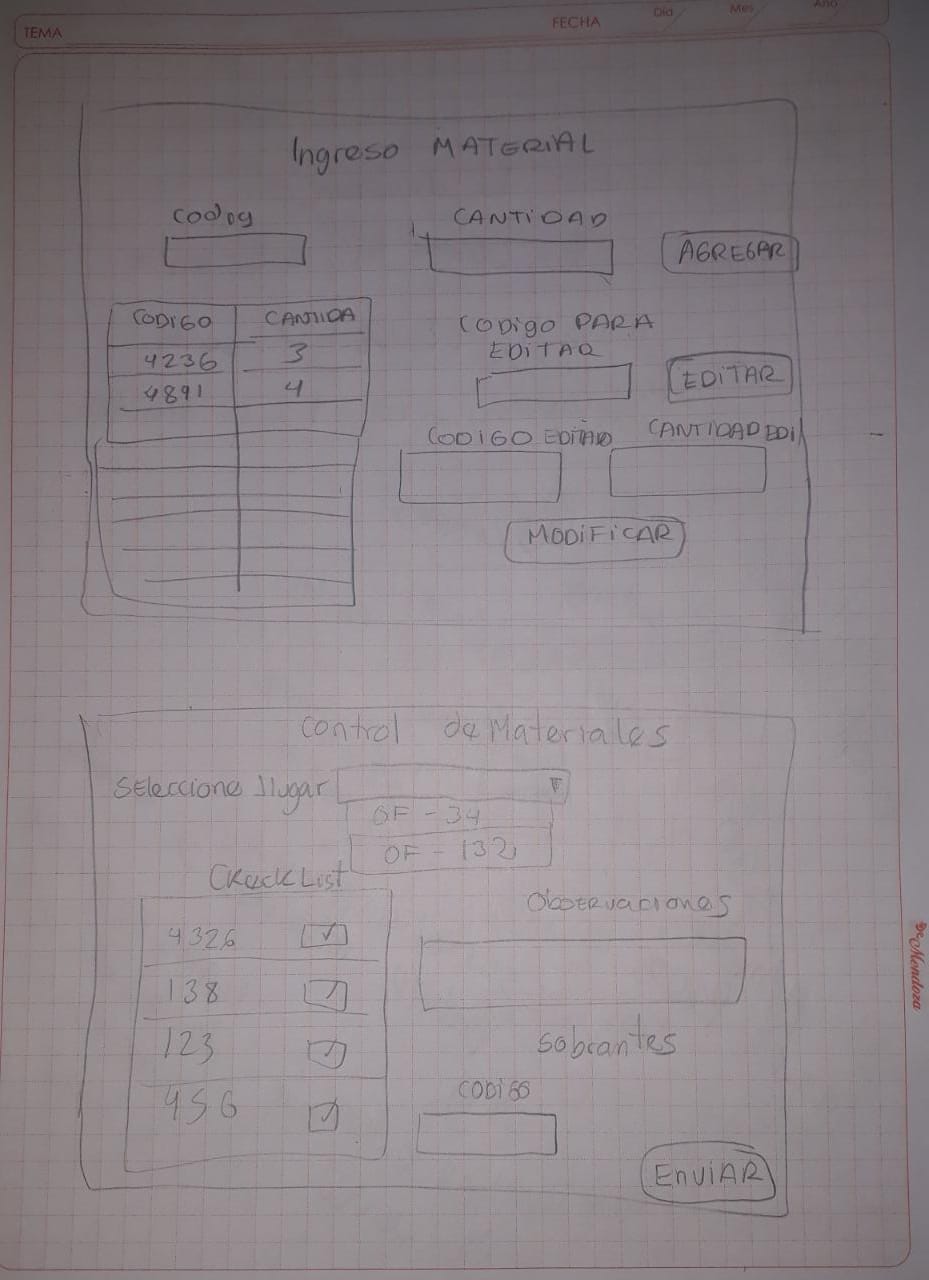 TEMA
FECHA
Día Mes Año
Ingreso MATERIAL
CANTIDAD
AGREGAR
CODIGO CANTIDA
4236 3
4891 4
CODigo PARA
EDITAR
EDITAR
CODIGO EDITADO CANTIDAD EDI
MODIFICAR
Control de Materiales
Seleccione llugar
OF - 34
OF - 132
Check List
4326
138
123
456
Observaciones
Sobrantes
CODIGO
ENVIAR
De Mendoza